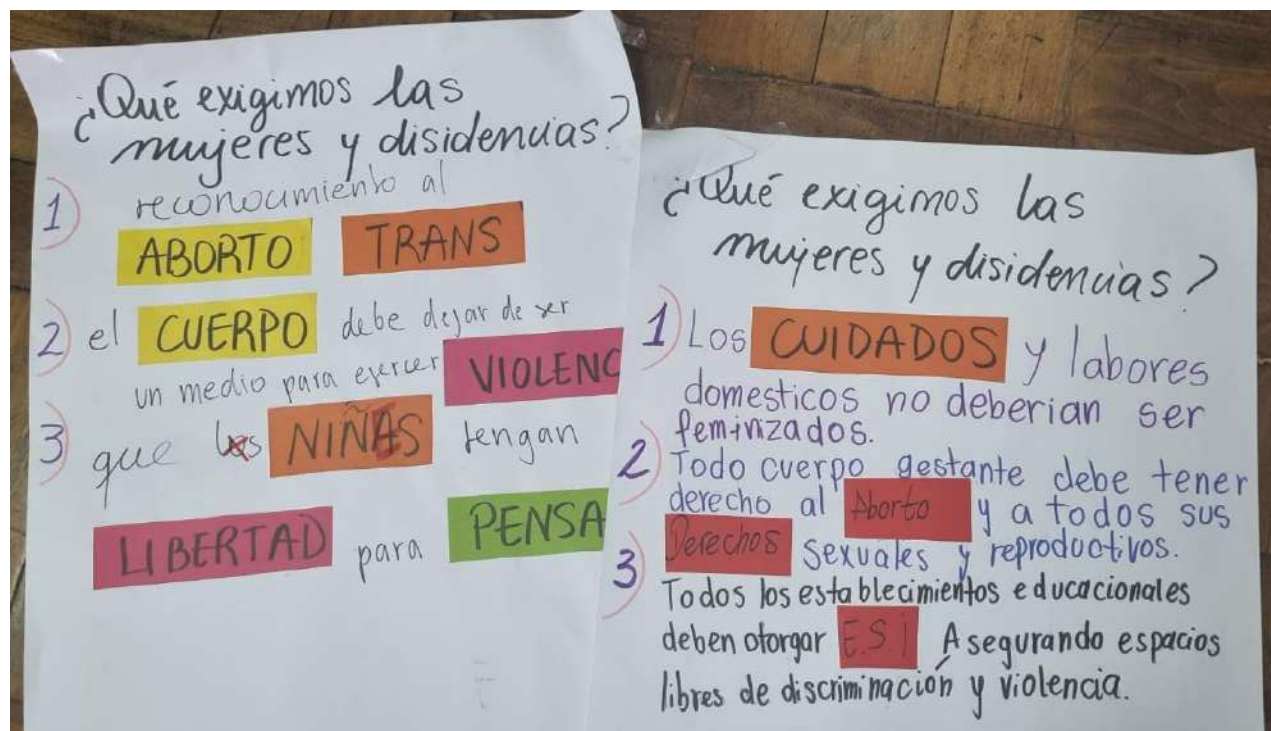 ¿Qué exigimos las
mujeres y disidencias?
1) reconocimiento al
ABORTO TRANS
2) el CUERPO debe dejar de ser
un medio para ejercer VIOLENC
3) que NIÑES tengan
LIBERTAD para PENSA
¿Qué exigimos las
mujeres y disidencias?
1) Los CUIDADOS y labores
domesticos no deberian ser
feminizados.
2) Todo cuerpo gestante debe tener
derecho al Aborto y a todos sus
Derechos sexuales y reproductivos.
3) Todos los establecimientos educacionales
deben otorgar E.S.I Asegurando espacios
libres de discriminación y violencia.